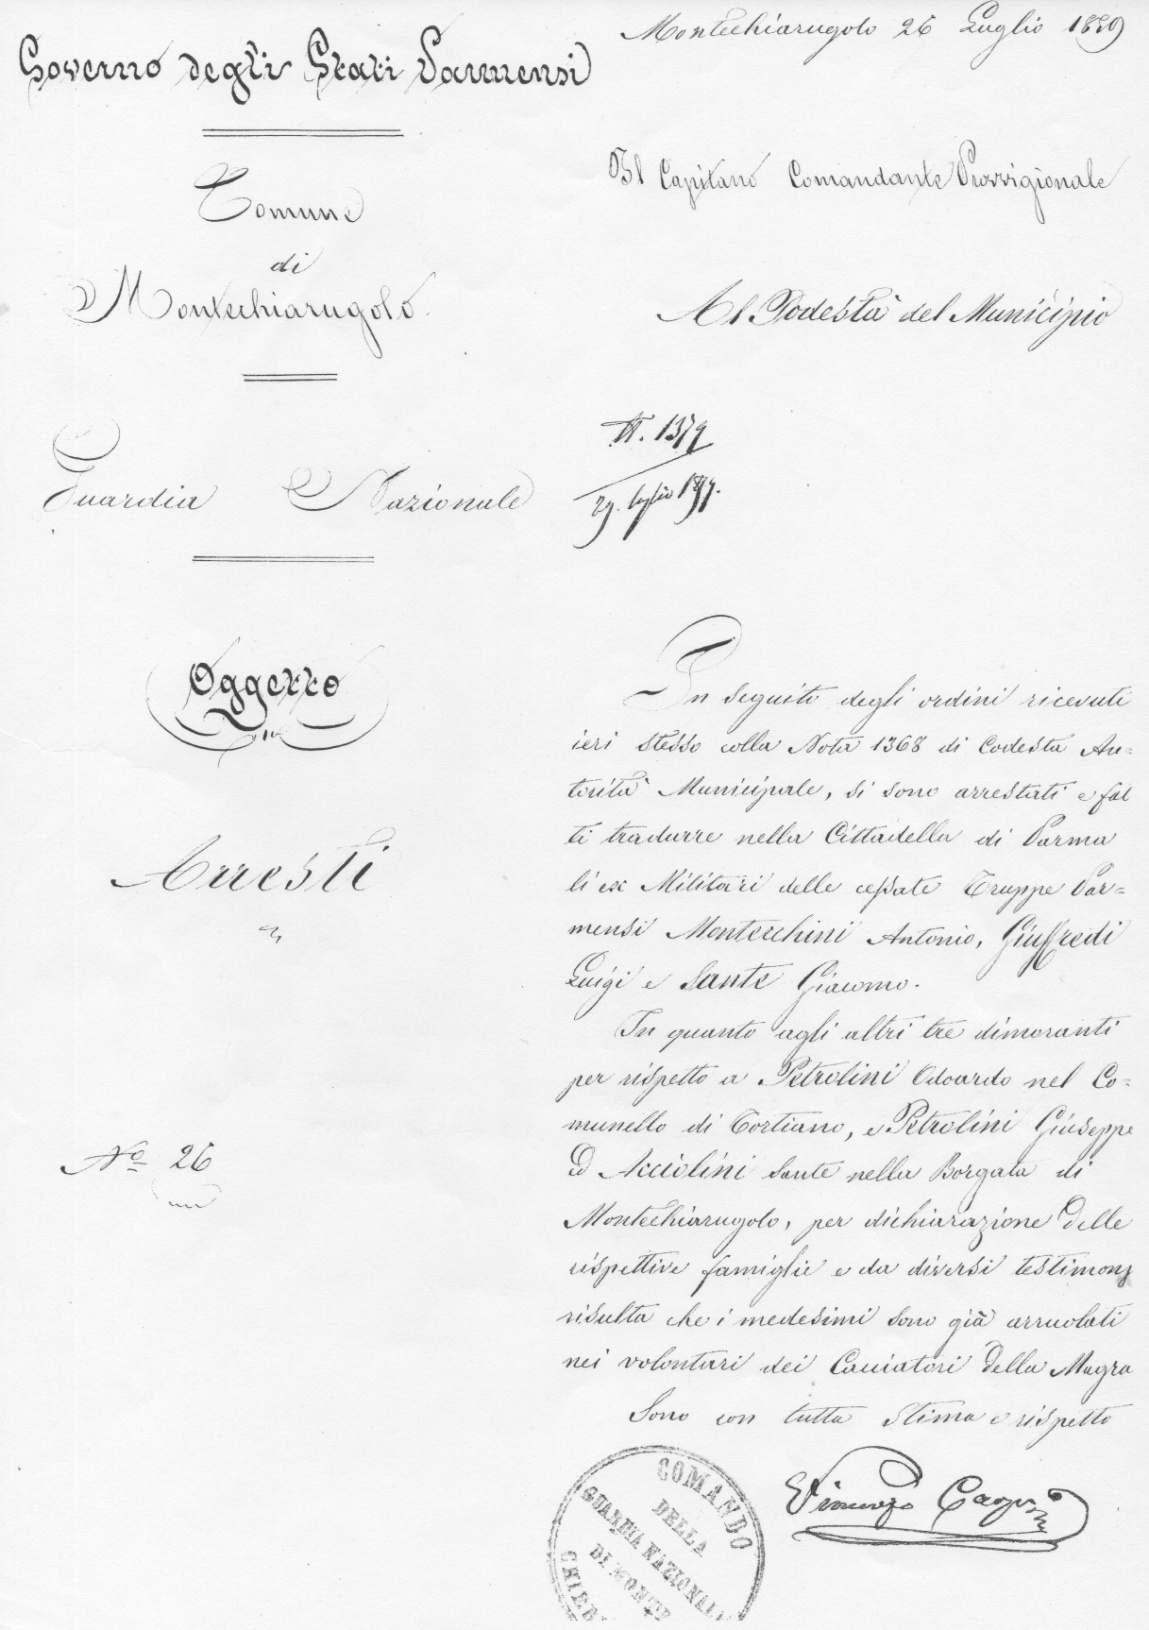 Montechiarugolo 26 Luglio 1859
Governo degli Stati Parmensi
Comune
di
Montechiarugolo.
Guardia Nazionale
Oggetto
Arresti
Nº 26
Il Capitano Comandante Provvigionale
Al Podestà del Municipio
N. 1379
29. luglio 1859.
In seguito degli ordini ricevuti
ieri stesso colla Nota 1368 di Codesta Au=
torità Municipale, si sono arrestati e fat
ti tradurre nella Cittadella di Parma
li ex Militari delle cessate Truppe Par=
mensi Montecchini Antonio, Giuffredi
Luigi e Sante Giacomo.
In quanto agli altri tre dimoranti
per rispetto a Petrolini Odoardo nel Co=
munello di Tortiano, e Petrolini Giuseppe
Ed Acciolini Sante nella Borgata di
Montechiarugolo, per dichiarazione delle
rispettive famiglie e da diversi testimonj
risulta che i medesimi sono già arruolati
nei volontari dei Cacciatori della Magra
Sono con tutta stima e rispetto
Vincenzo
COMANDO
DELLA
GUARDIA NAZIONALE
DI MONTE
CHIER